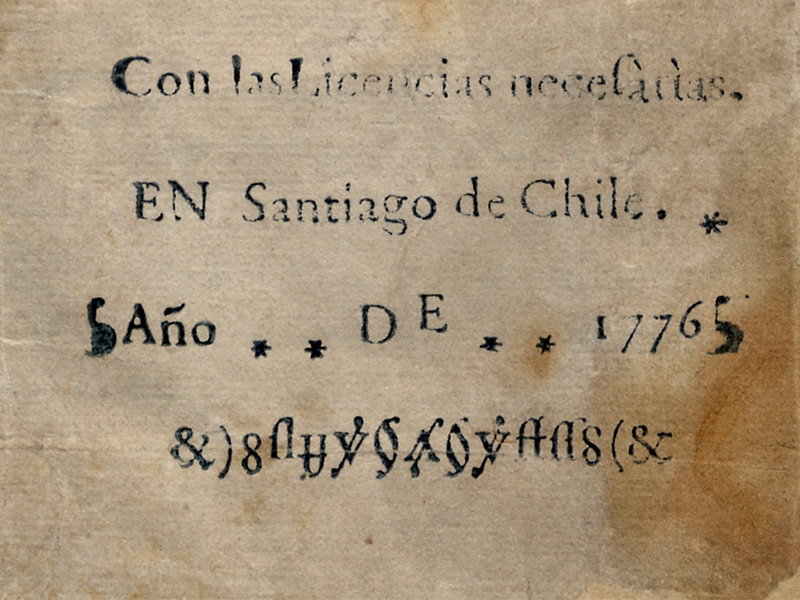 Con las Licencias neceſàrìas.
EN Santiago de Chile. *
Año * * DE * * 1776
&)8
8(&